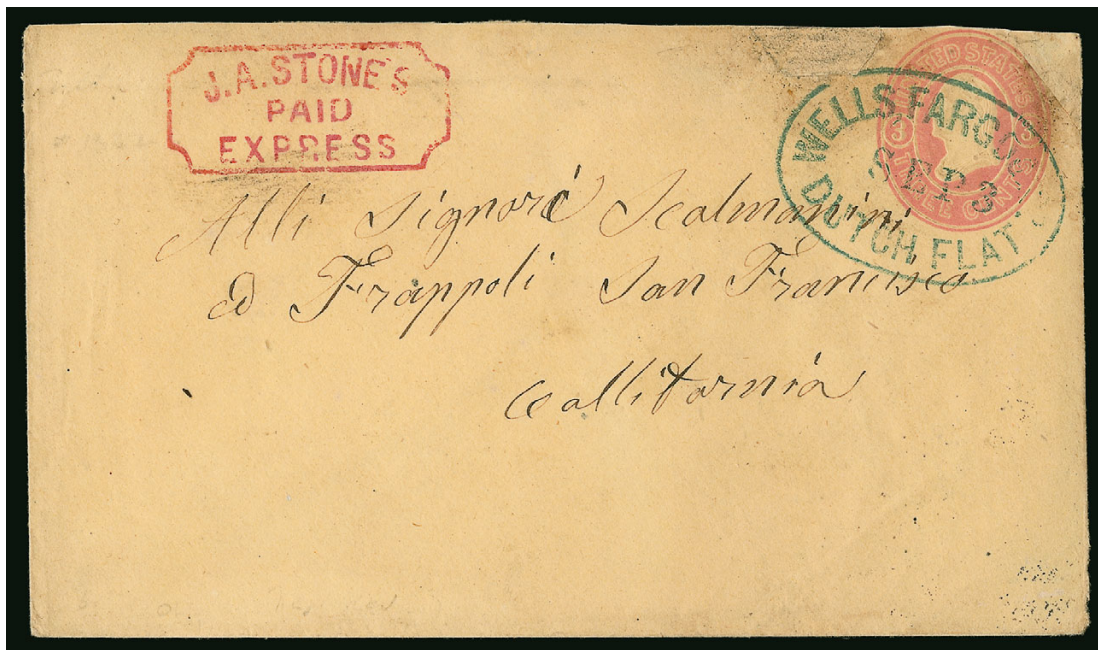 J.A. STONE'S
PAID
EXPRESS
UNITED STATES
3 3
THREE CENTS
WELLS, FARGO & CO
SEP 3
DUTCH FLAT
Alli Signori Scalmanini
ed Frappoli San Francisco
Callifornia